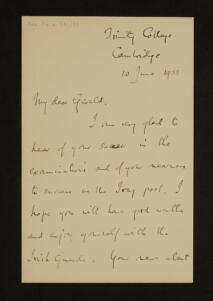 Trinity College
Cambridge
10 June 1933
My dear Gerald,
I am very glad to
hear of your success in the
examinations and of your nearness
to success in the Ivory post. I
hope you will have good walks
and enjoy yourself with the
Irish Guards. Your news about